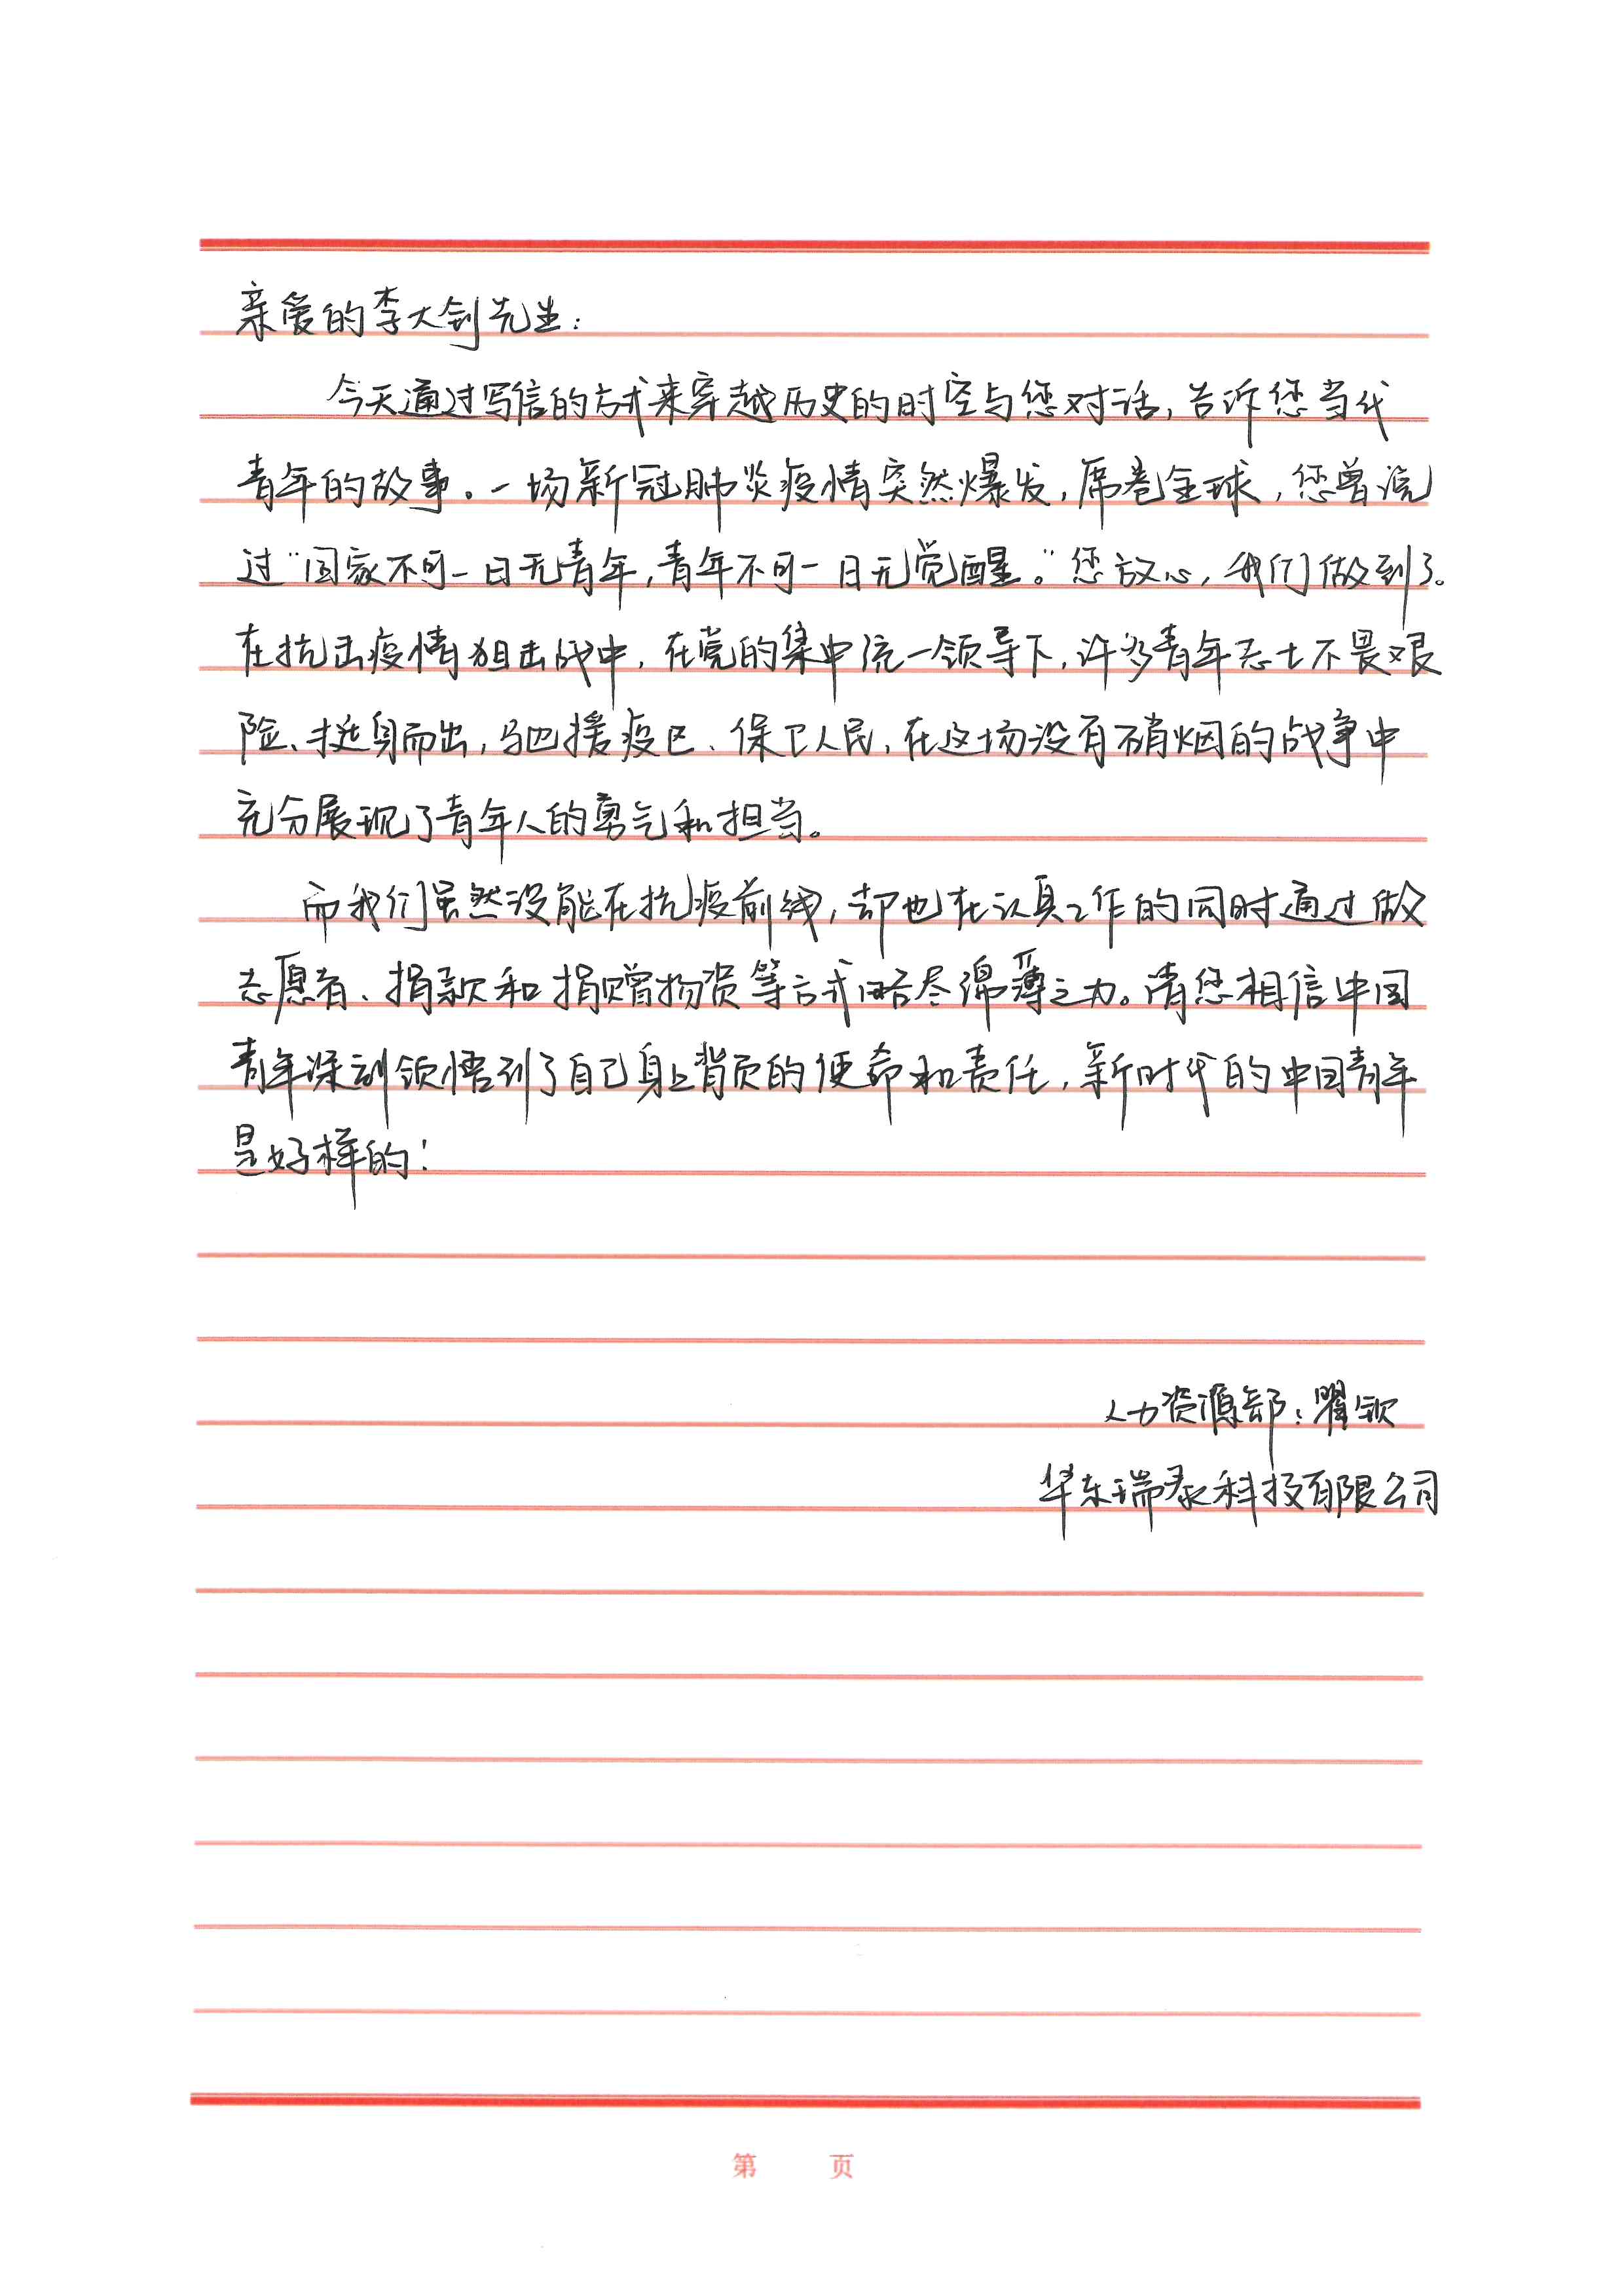 亲爱的李大钊先生：
今天通过写信的方式来穿越历史的时空与您对话，告诉您当代
青年的故事。一场新冠肺炎疫情突然爆发，席卷全球，您曾说
过“国家不可一日无青年，青年不可一日无觉醒。”您放心，我们做到了。
在抗击疫情狙击战中，在党的集中统一领导下，许多青年志士不畏艰
险、挺身而出，驰援疫区、保卫人民，在这场没有硝烟的战争中
充分展现了青年人的勇气和担当。
而我们虽然没能在抗疫前线，却也在认真工作的同时通过做
志愿者、捐款和捐赠物资等方式略尽绵薄之力。请您相信中国
青年深刻领悟到了自己身上背负的使命和责任，新时代的中国青年
是好样的！
人力资源部：瞿钦
华东瑞泰科技有限公司
第 页